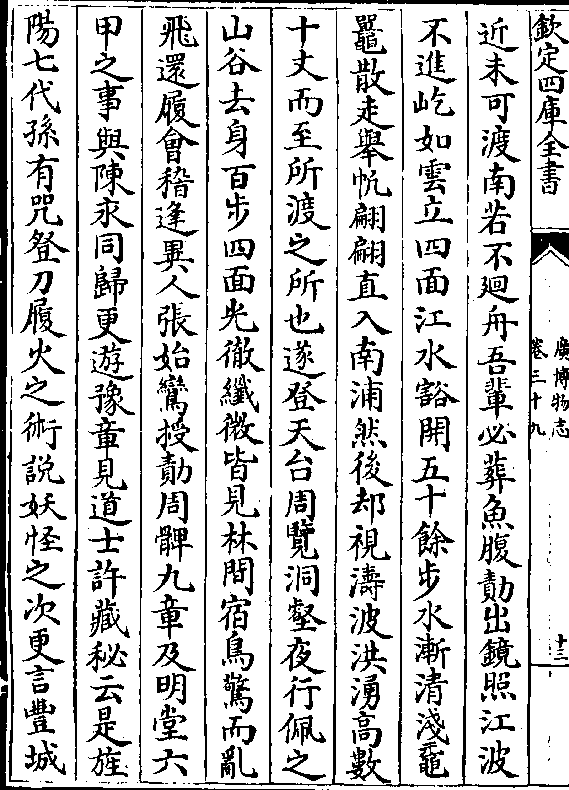 欽定四庫全書
廣博物志
卷三十九
十三
近未可渡南若不廻舟吾輩必葬魚腹勣出鏡照江波
不進屹如雲立四面江水豁開五十餘步水漸清淺黿
鼉散走舉帆翩翩直入南浦然後却視濤波洪湧高數
十丈而至所渡之所也遂登天台周覽洞壑夜行佩之
山谷去身百步四面光徹纖微皆見林間宿鳥驚而亂
飛還履會稽逢異人張始鸞授勣周髀九章及明堂六
甲之事與陳永同歸更遊豫章見道士許藏秘云是旌
陽七代孫有咒登刀履火之術說妖怪之次更言豐城